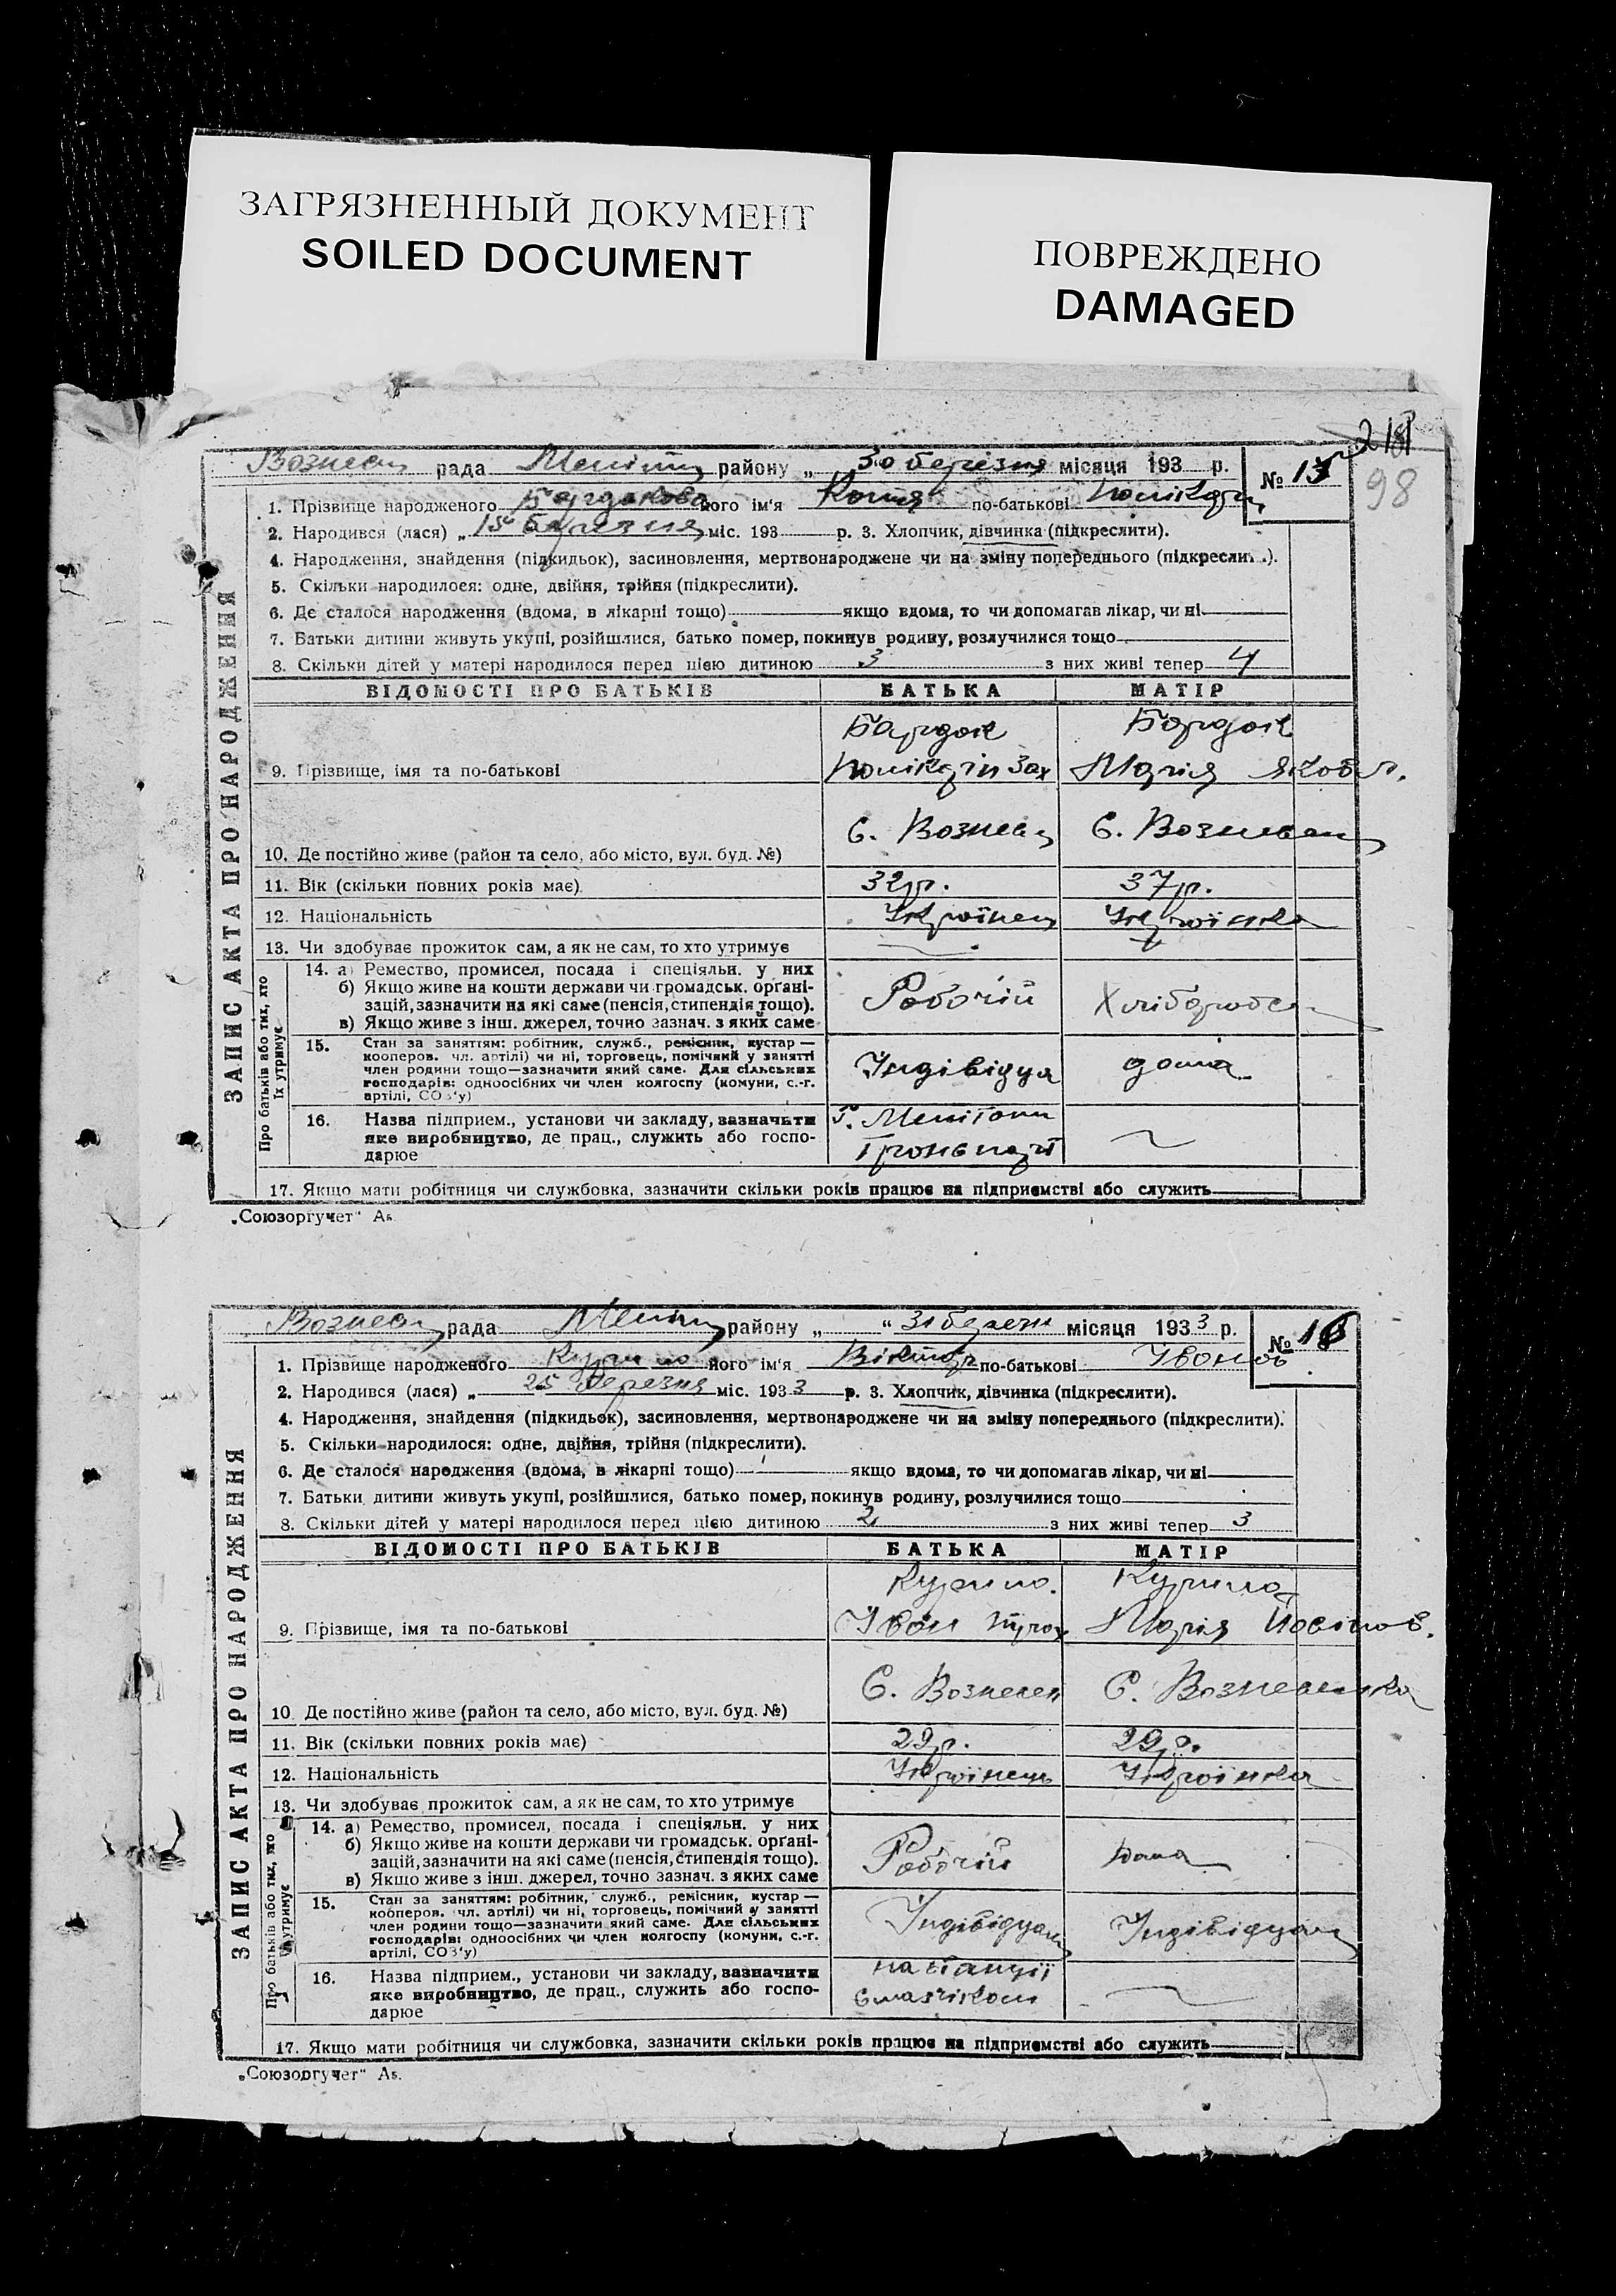 ЗАГРЯЗНЕННЫЙ ДОКУМЕНТ
SOILED DOCUMENT
ПОВРЕЖДЕНО
DAMAGED
98
ЗАПИС АКТА ПРО НАРОДЖЕННЯ
Вознесен рада Меліт району „ 30 березня місяця 193 р. № 15
1. Прізвище народженого його ім'я Катя по-батькові
2. Народився (лася) „ 15 березня міс. 193 р. 3. Хлопчик, дівчинка (підкреслити).
4. Народження, знайдення (підкидьок), засиновлення, мертвонароджене чи на зміну попереднього (підкреслити).
5. Скільки народилося: одне, двійня, трійня (підкреслити).
6. Де сталося народження (вдома, в лікарні тощо) якщо вдома, то чи допомагав лікар, чи ні
7. Батьки дитини живуть укупі, розійшлися, батько помер, покинув родину, розлучилися тощо
8. Скільки дітей у матері народилося перед цією дитиною 3 з них живі тепер 4
ВІДОМОСТІ ПРО БАТЬКІВ БАТЬКА МАТІР
Бардак Бардак
9. Прізвище, імя та по-батькові Полікарп Зах Марія Яковл.
10. Де постійно живе (район та село, або місто, вул. буд. №) С. Вознесен С. Вознесен
11. Вік (скільки повних років має) 32 р. 37 р.
12. Національність Українец Українка
13. Чи здобуває прожиток сам, а як не сам, то хто утримує
Про батьків або тих, хто їх утримує
14. а) Ремество, промисел, посада і спеціяльн. у них
б) Якщо живе на кошти держави чи громадськ. органі-
зацій, зазначити на які саме (пенсія, стипендія тощо). Робочій Хлібороб
в) Якщо живе з інш. джерел, точно зазнач. з яких саме
15. Стан за заняттям: робітник, служб., ремісник, кустар —
кооперов. чл. артілі) чи ні, торговець, помічний у занятті
член родини тощо—зазначити який саме. Для сільських Індівідуа дома
господарів: одноосібних чи член колгоспу (комуни, с.-г.
артілі, СОЗ'у)
16. Назва підприєм., установи чи закладу, зазначити Г. Мелітопи
яке виробництво, де прац., служить або госпо- Транспорт
дарює
17. Якщо мати робітниця чи службовка, зазначити скільки років працює на підприємстві або служить
„Союзоргучет" А5
ЗАПИС АКТА ПРО НАРОДЖЕННЯ
Вознесен рада Меліт району „ “ 31 березн місяця 1933 р. № 16
1. Прізвище народженого Курило його ім'я Віктор по-батькові Іванов
2. Народився (лася) „ 25 березня міс. 1933 р. 3. Хлопчик, дівчинка (підкреслити).
4. Народження, знайдення (підкидьок), засиновлення, мертвонароджене чи на зміну попереднього (підкреслити).
5. Скільки народилося: одне, двійня, трійня (підкреслити).
6. Де сталося народження (вдома, в лікарні тощо) якщо вдома, то чи допомагав лікар, чи ні
7. Батьки дитини живуть укупі, розійшлися, батько помер, покинув родину, розлучилися тощо
8. Скільки дітей у матері народилося перед цією дитиною 2 з них живі тепер 3
ВІДОМОСТІ ПРО БАТЬКІВ БАТЬКА МАТІР
Курило. Курило
9. Прізвище, імя та по-батькові Іван Трох Марія Йосіпов.
10. Де постійно живе (район та село, або місто, вул. буд. №) С. Вознесен С. Вознесенка
11. Вік (скільки повних років має) 29 р. 29 р.
12. Національність Українець Українка
13. Чи здобуває прожиток сам, а як не сам, то хто утримує
Про батьків або тих, хто їх утримує
14. а) Ремество, промисел, посада і спеціяльн. у них
б) Якщо живе на кошти держави чи громадськ. органі-
зацій, зазначити на які саме (пенсія, стипендія тощо). Робочій дома
в) Якщо живе з інш. джерел, точно зазнач. з яких саме
15. Стан за заняттям: робітник, служб., ремісник, кустар —
кооперов. чл. артілі) чи ні, торговець, помічний у занятті
член родини тощо—зазначити який саме. Для сільських Індівідуал Індівідуал
господарів: одноосібних чи член колгоспу (комуни, с.-г.
артілі, СОЗ'у)
16. Назва підприєм., установи чи закладу, зазначити на станції
яке виробництво, де прац., служить або госпо- смазчіком
дарює
17. Якщо мати робітниця чи службовка, зазначити скільки років працює на підприємстві або служить
„Союзоргучет" А5.